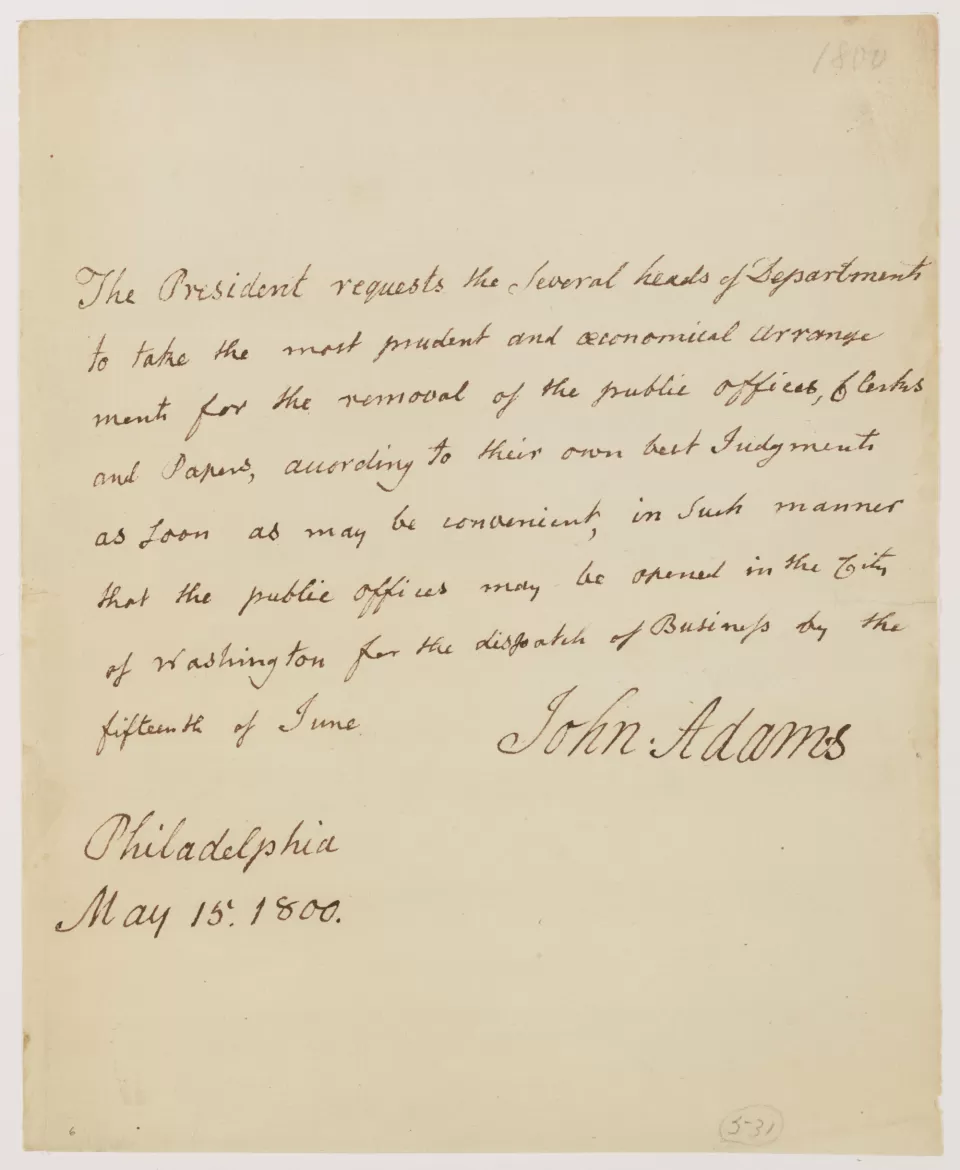 1800
The President requests the Several heads of Departments
to take the most prudent and œconomical arrange
ments for the removal of the public offices, Clerks
and Papers, according to their own best Judgments
as Soon as may be convenient, in Such manner
that the public offices may be opened in the City
of Washington for the dispatch of Business by the
fifteenth of June.
John Adams
Philadelphia
May 15. 1800.
5-31
6